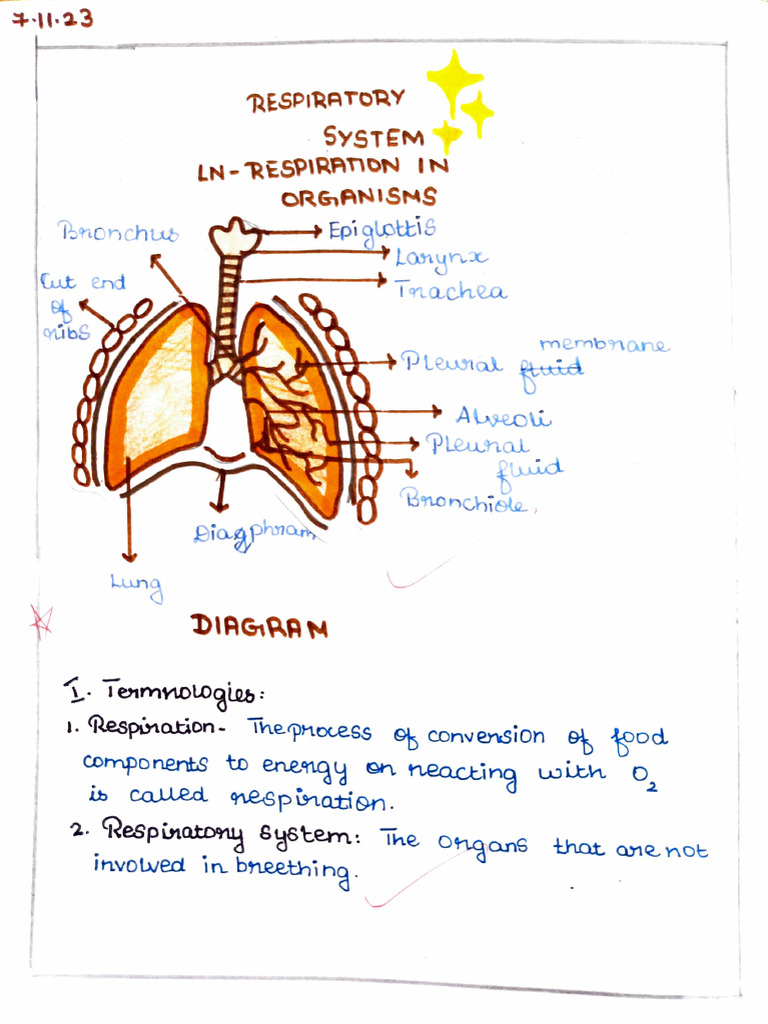 7.11.23
RESPIRATORY
SYSTEM
LN-RESPIRATION IN
ORGANISMS
Bronchus
Epiglottis
Larynx
Cut end
of
ribs
Trachea
membrane
Pleural fluid
Alveoli
Pleural
fluid
Bronchiole,
Diagphram
Lung
DIAGRAM
I. Termnologies:
1. Respiration- The process of conversion of food
components to energy on reacting with O₂
is called respiration.
2. Respiratory system: The organs that are not
involved in breething.